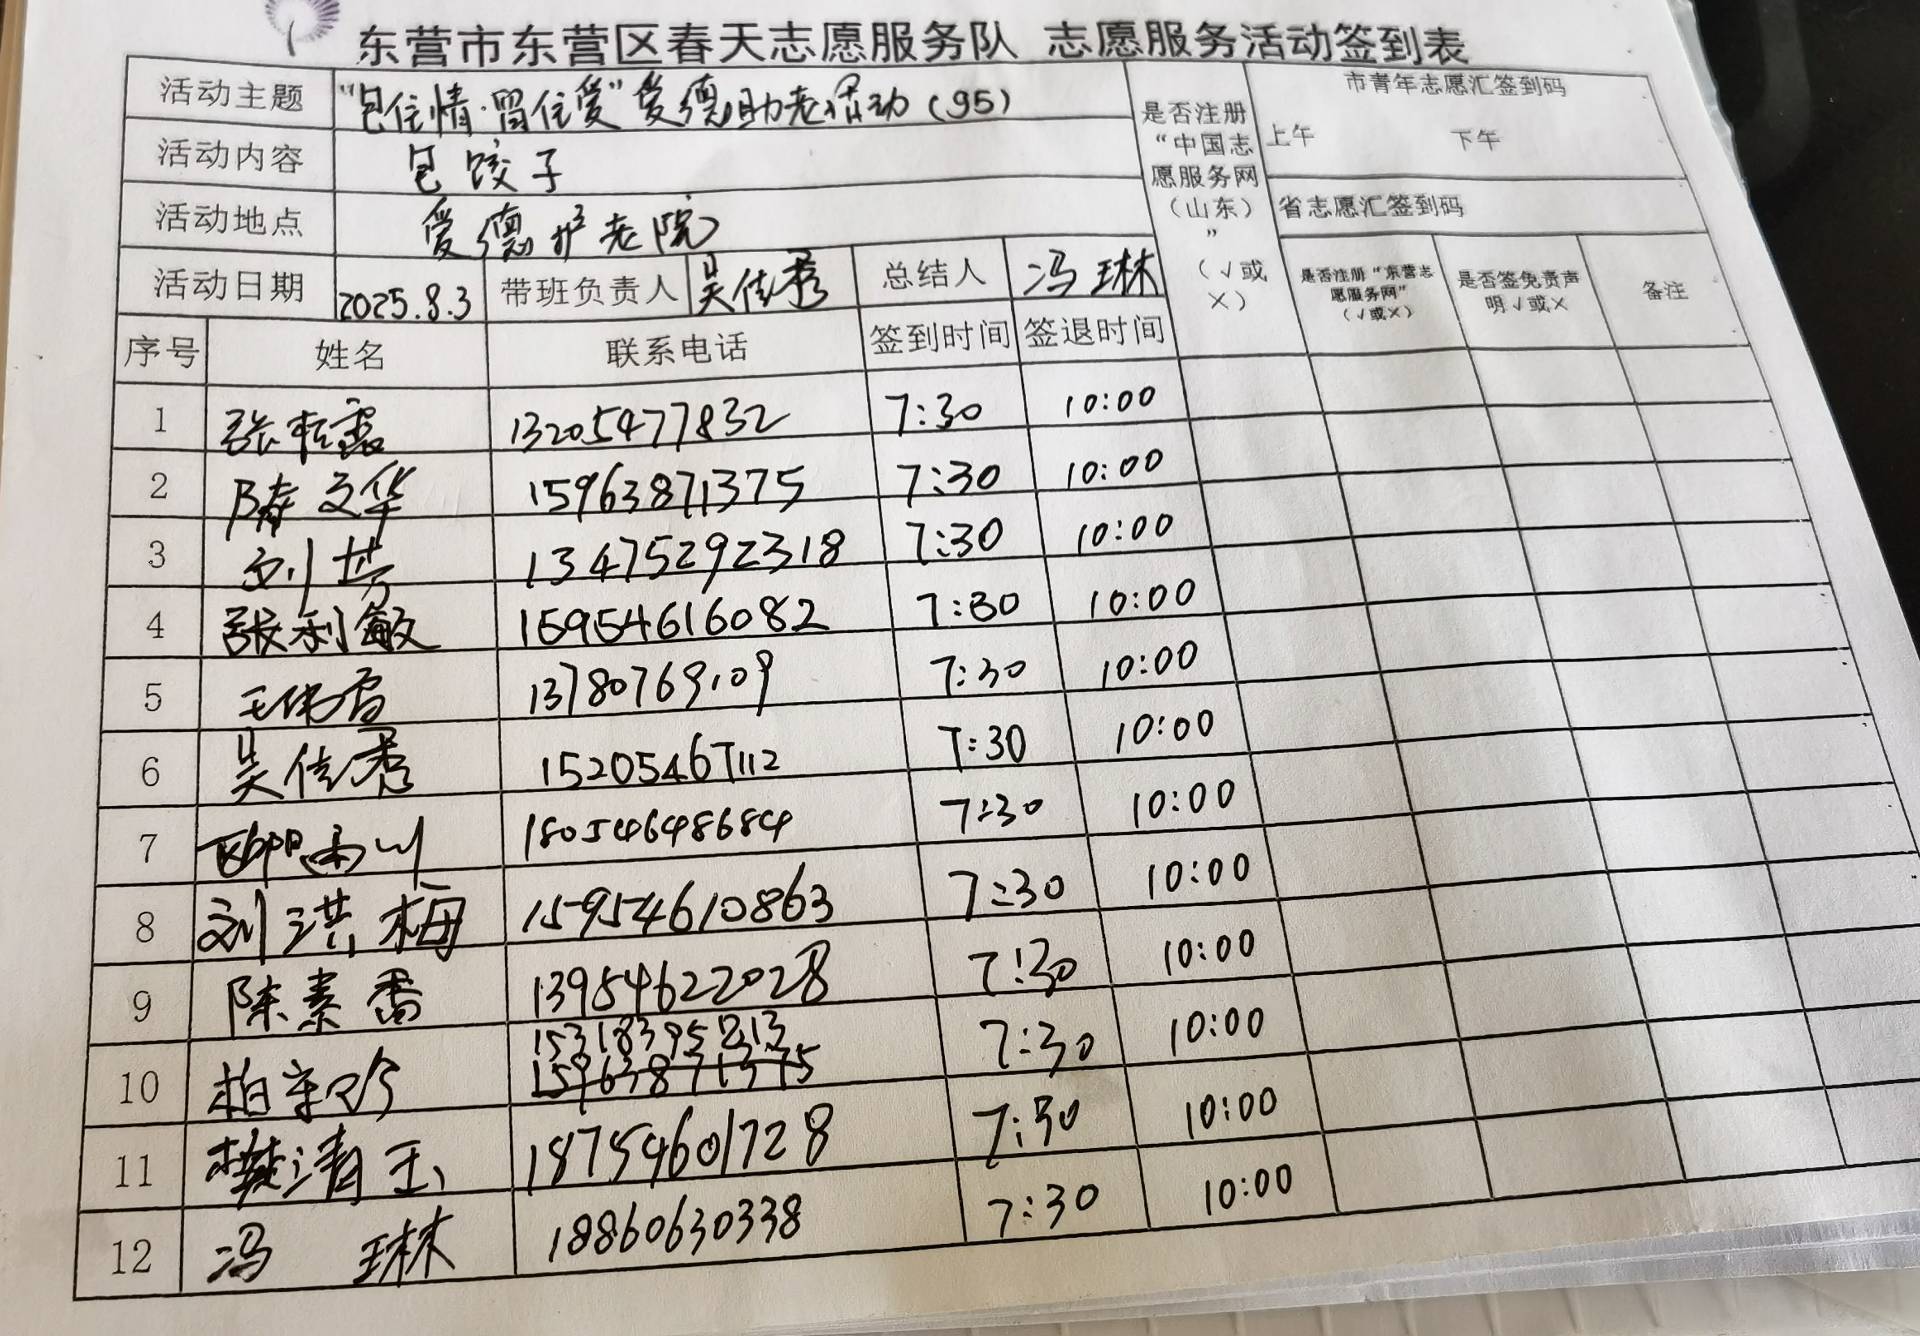 东营市东营区春天志愿服务队 志愿服务活动签到表
活动主题 "包住情·留住爱"爱德助老活动(95) 是否注册"中国志愿服务网(山东)"(√或×) 市青年志愿汇签到码
上午 下午
活动内容 包饺子
活动地点 爱德护老院 省志愿汇签到码
活动日期 2025.8.3 带班负责人 吴佳秀 总结人 冯琳 是否注册"东营志愿服务网"(√或×) 是否签免责声明√或× 备注
序号 姓名 联系电话 签到时间 签退时间
1 13205477832 7:30 10:00
2 隋文华 15963871375 7:30 10:00
3 刘芳 13475292318 7:30 10:00
4 张利敏 15954616082 7:30 10:00
5 13780769109 7:30 10:00
6 吴佳秀 15205467112 7:30 10:00
7 18054648684 7:30 10:00
8 刘洪梅 15954610863 7:30 10:00
9 陈素香 13954622028 7:30 10:00
10 15318395213 7:30 10:00
15963871375
11 樊清玉 18754601728 7:30 10:00
12 冯琳 18860630338 7:30 10:00